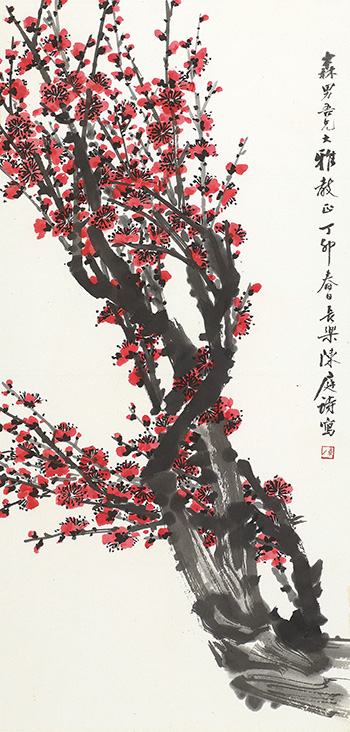 森男吾兄大雅教正丁卯春日長樂陳庭詩寫